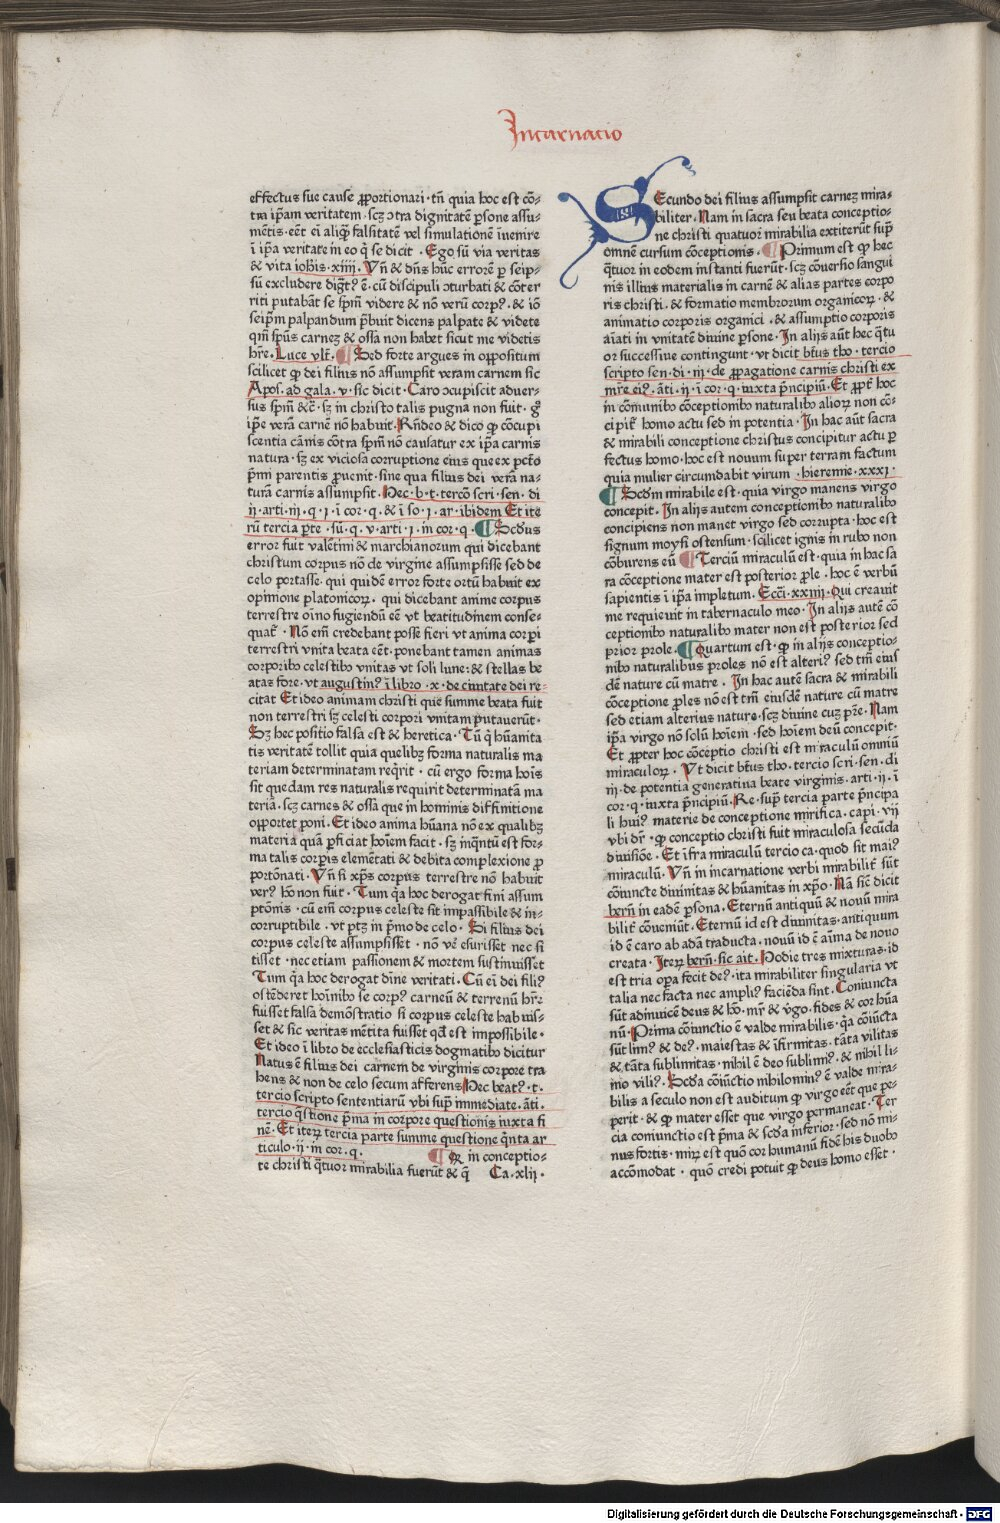 Incarnacio
effectus sue cause ꝓportionari · tñ quia hoc est cō-
tra ip̄am veritatem · scꝫ ↄtra dignitatē ꝑsone assu-
mētis · eēt ei aliqͣ falsitatē vel simulationē īvenire
ī ip̄a veritate in eo q̄ se dicit · Ego sū via veritas
& vita ioh̄is · xiiii · Vn̄ & dn̄s hūc errorē ꝑ seip-
sū excludere dig̅tᵉ ē · cū discipuli ↄturbati & cōter
riti putabāt se sp̄m videre & nō verū corpꝰ · & iō
seip̄m palpandum p̄buit dicens palpate & videte
qm̄ sp̄us carneꝫ & ossa non habet sicut me videtis
hr̄e · Luce vlt̄ · ¶ Sed forte argues in oppositum
scilicet ꝙ dei filius nō assumpsit veram carnem sic
Apos · ad gala · v · sic dicit · Caro ↄcupiscit adver-
sus sp̄m &c̄ · sꝫ in christo talis pugna non fuit · gͦ
ip̄e verā carnē nō habuit · Rn̄deo & dico ꝙ cōcupi
scentia cārnis cōtra sp̄m nō causatur ex ip̄a carnis
natura · sꝫ ex viciosa corruptione eius que ex pctō
p̄mi parentis ꝓvenit · sine qua filius dei verā na-
turā carnis assumpsit · Hec · b · t · tercō scri · sen · di
ii · arti · iii · q · i · ī cor · q · & ī so · i · ar · ibidem Et ite
rū tercia ꝑte · sū · q · v · arti · i · in cor · q · ¶ Scd̄us
error fuit valētini & marchianorum qui dicebant
christum corpus nō de virgine assumpsisse sed de
celo portasse · qui quidē error forte ortū habuit ex
opinione platonicoꝝ · qui dicebant anime corpus
terrestre oīno fugiendū eē vt beatitudinem conse-
quat̄ · Nō em̄ credebant posse fieri vt anima corpori
terrestri vnita beata eēt · ponebant tamen animas
corporibꝰ celestibꝰ vnitas vt soli lune · & stellas be
atas fore · vt augustinꝰ ī libro · x · de civitate dei re-
citat Et ideo animam christi que summe beata fuit
non terrestri sꝫ celesti corpori vnitam putaverūt ·
Sꝫ hec positio falsa est & heretica · Tū q̄ hūanita
tis veritatē tollit quia quelibꝫ forma naturalis ma
teriam determinatam req̄rit · cū ergo forma hoīs
sit quedam res naturalis requirit determinatā ma
teriā · scꝫ carnes & ossa que in hominis diffinitione
opportet poni · Et ideo anima hūana nō ex qualibꝫ
materia quā ꝑficiat hoīem facit · sꝫ inq̄ntū est for-
ma talis corꝑis elemētati & debita complexione ꝓ
portōnati · Vn̄ si xp̄s corpus terrestre nō habuit
verꝰ hō non fuit · Tum q̄a hoc derogat fini assum
ptōnis · cū em̄ corpus celeste sit impassibile & in-
corruptibile · vt ptꝫ in p̄mo de celo · Si filius dei
corpus celeste assumpsisset · nō vē esurisset nec si
tisset · nec etiam passionem & mortem sustinuisset
Tum q̄a hoc derogat dīne veritati · Cū eī dei filiꝰ
ostēderet hoīnibꝰ se corpꝰ carneū & terrenū hr̄e
fuisset falsa demōstratio si corpus celeste habuis-
set & sic veritas mētita fuisset qd̄ est impossibile ·
Et ideo ī libro de ecclesiasticis dogmatibꝰ dicitur
Natus ē filius dei carnem de virginis corpore tra
hens & non de celo secum afferens Hec beatꝰ · t ·
tercio scripto sententiarū vbi sup̄ immediate · āti ·
tercio q̄stione p̄ma in corpore questionis iuxta fi
nē · Et iteꝝ tercia parte summe questione q̄nta ar
ticulo · ii · in cor · q ·
¶ Q in conceptio-
te christi q̄tuor mirabilia fuerūt & q̄ Ca · xlij ·
Secundo dei filius assumpsit carneꝫ mira-
biliter · Nam in sacra seu beata conceptio-
ne christi quatuor mirabilia extiterūt sup̄
omnē cursum cōceptionis · ¶ Primum est ꝙ hec
q̄tuor in eodem instanti fuerūt · scꝫ cōversio sangui
nis illius materialis in carnē & alias partes corpo
ris christi · & formatio membrorum organicoꝝ · &
animatio corporis organici · & assumptio corporis
aīati in vnitatē divine ꝑsone · In alijs aūt hec q̄tu
or successive contingunt · vt dicit btūs tho · tercio
scripto sen · di · iii · de ꝓpagatione carnis christi ex
mr̄e eiꝰ · āti · ii · ī cor · q · iuxta p̄ncipiū · Et ꝓpt̄ hoc
in cōmunibꝰ cōceptionibꝰ naturalibꝰ alioꝝ non cō-
cipit̄ homo actu sed in potentia · In hac aūt sacra
& mirabili conceptione christus concipitur actu ꝑ
fectus homo · hoc est novum super terram factum
quia mulier circumdabit virum · hieremie · xxxi ·
¶ Scd̄m mirabile est · quia virgo manens virgo
concepit · In alijs autem conceptionibꝰ naturalibꝰ
concipiens non manet virgo sed corrupta · hoc est
signum moysi ostensum · scilicet ignis in rubo non
cōburens eū ¶ Terciū miraculū est · quia in hac sa
ra cōceptione mater est posterior ꝓle · hoc ē verbū
sapientis ī ip̄a impletum · Ecci · xxiiii · Qui creavit
me requievit in tabernaculo meo · In alijs autē cō
ceptionibꝰ naturalibꝰ mater non est posterior sed
prior prole · ¶ Quartum est · ꝙ in alijs conceptio-
nibꝰ naturalibus proles nō est alteriꝰ sed tm̄ eius
dē nature cū matre · In hac autē sacra & mirabili
cōceptione ꝓles nō est tm̄ eiusdē nature cū matre
sed etiam alterius nature · scꝫ divine cuꝫ pr̄e · Nam
ip̄a virgo nō solū hoīem · sed hoīem deū concepit ·
Et ꝓpter hoc cōceptio christi est miraculū omniū
miraculoꝝ · Vt dicit btūs tho · tercio scri · sen · di
iij · de potentia generatina beate virginis · arti · ii · ī
cor · q · iuxta p̄ncipiū · Re · sup̄ tercia parte p̄ncipa
li huiꝰ materie de conceptione mirifica · capi · vij
vbi dr̄ · ꝙ conceptio christi fuit miraculosa secūda
divisiōe · Et īfra miraculū tercio ca · quod sit maiꝰ
miraculū · Vn̄ in incarnatione verbi mirabilit̄ sūt
cōiuncte divinitas & hūanitas in xp̄o · Nā sic̄ dicit
bern̄ in eadē ꝑsona · Eternū antiquū & novū mira
bilit̄ cōveniūt · Eternū id est divinitas · antiquum
id ē caro ab adā traducta · novū id ē aīma de novo
creata · Iteꝝ bern̄ · sic ait · Hodie tres mixturas · id
est tria oꝑa fecit deꝰ · ita mirabiliter singularia vt
talia nec facta nec ampliꝰ faciēda sint · Coniuncta
sūt adinvicē deus & hō · mr̄ & v̄go · fides & cor hūa
nū · Prima cōiunctio ē valde mirabilis · q̄a cōiūcta
sūt limꝰ & deꝰ · maiestas & īfirmitas · tāta vilitas
& tāta sublimitas · nihil ē deo sublimiꝰ · & nihil li-
mo viliꝰ · Scd̄a cōiūctio nihilominꝰ ē valde mira-
bilis a seculo non est auditum ꝙ virgo eēt que pe-
perit · & ꝙ mater esset que virgo permaneat · Ter
cia coniunctio est p̄ma & scd̄a inferior · sed nō mi-
nus fortis · miꝝ est quō cor humanū fidē his duobꝰ
accōmodat · quō credi potuit ꝙ deus homo esset ·
Digitalisierung gefördert durch die Deutsche Forschungsgemeinschaft - DFG